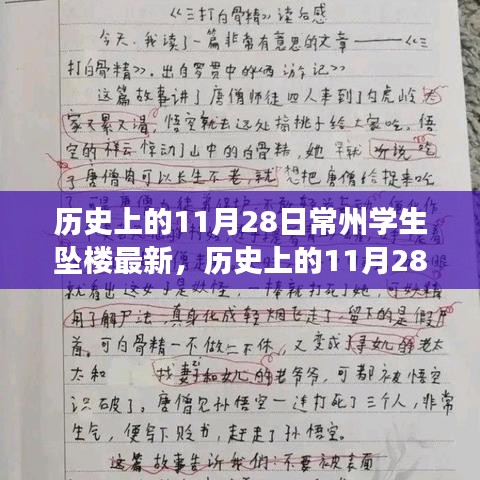 《三打白骨精》读后感
今天,我读了一篇非常有意思的文章——《三
打白骨精》,出自罗贯中的《西游记》
这篇故事讲了唐僧师徒四人来到了白虎岭大
家又累又渴,悟空就去远处摘桃子给大家吃。悟
空的祥云惊动了山中的白骨精,她早就听说吃
了唐僧肉可以长生不老,就想把唐僧给捉来吃
历史上的11月28日常州学生
坠楼最新,历史上的11月28
就看出这女子是妖怪,一棒就打死了她,可妖精
用了解尸法,真身化成轻烟飞走了,留下的是假尸
首。可白骨精一不做二不休,又变成了寻女儿的老太
太和找妻和女儿的老爷爷,可都被悟空
识破了。唐僧见孙悟空一连打死了三个人,非常
生气,便写下贬书,赶走了孙悟空。
这篇故事告诉我们:不要被表面